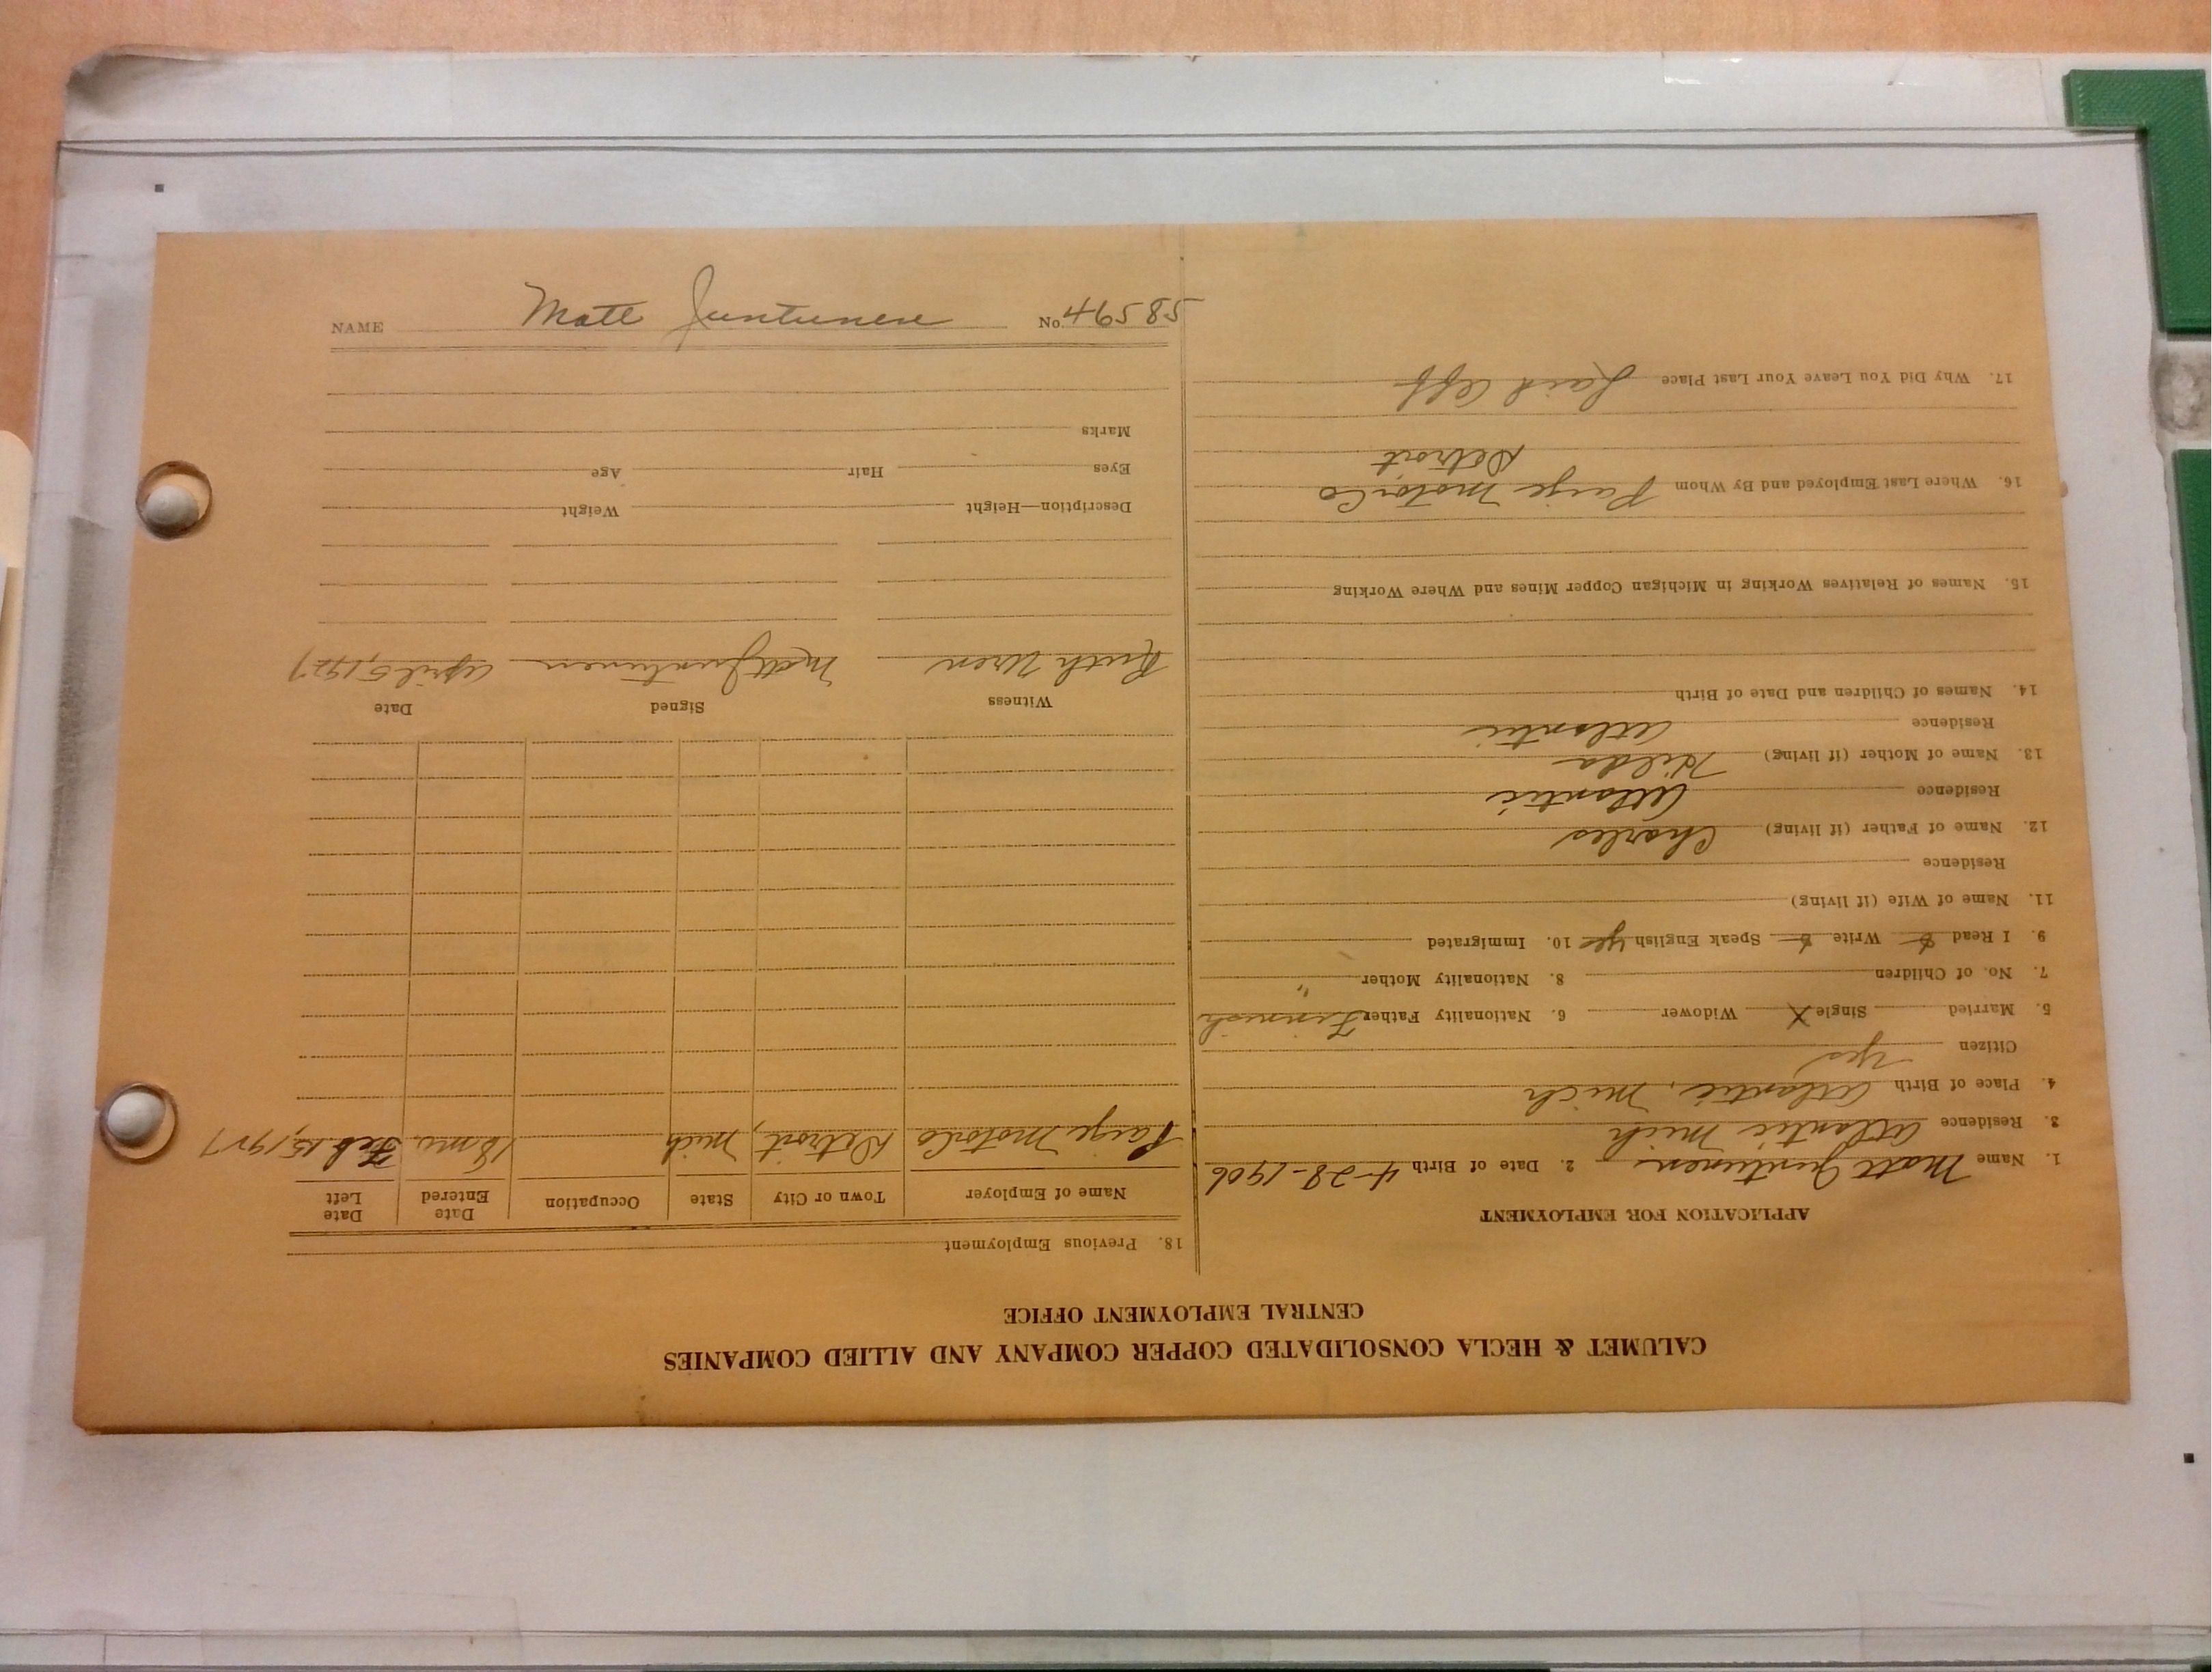 CALUMET & HECLA CONSOLIDATED COPPER COMPANY AND ALLIED COMPANIES
CENTRAL EMPLOYMENT OFFICE
APPLICATION FOR EMPLOYMENT
1. Name Matt Juntunen 2. Date of Birth 4-28-1906
3. Residence Atlantic Mich
4. Place of Birth Atlantic, Mich
Citizen yes
5. Married Single X Widower 6. Nationality Father Finnish
7. No. of Children 8. Nationality Mother "
9. I Read Write Speak English yes 10. Immigrated
11. Name of Wife (if living)
Residence
12. Name of Father (if living) Charles
Residence Atlantic
13. Name of Mother (if living) Hilda
Residence Atlantic
14. Names of Children and Date of Birth
15. Names of Relatives Working in Michigan Copper Mines and Where Working
16. Where Last Employed and By Whom Paige Motor Co
Detroit
17. Why Did You Leave Your Last Place Laid Off
18. Previous Employment
Name of Employer Town or City State Occupation Date Entered Date Left
Paige Motor Co Detroit, Mich 18 mo. Feb 15, 1927
Witness Signed Date
Ruth Uren Matt Juntunen April 5, 1927
Description—Height Weight
Eyes Hair Age
Marks
NAME Matt Juntunen No. 46585